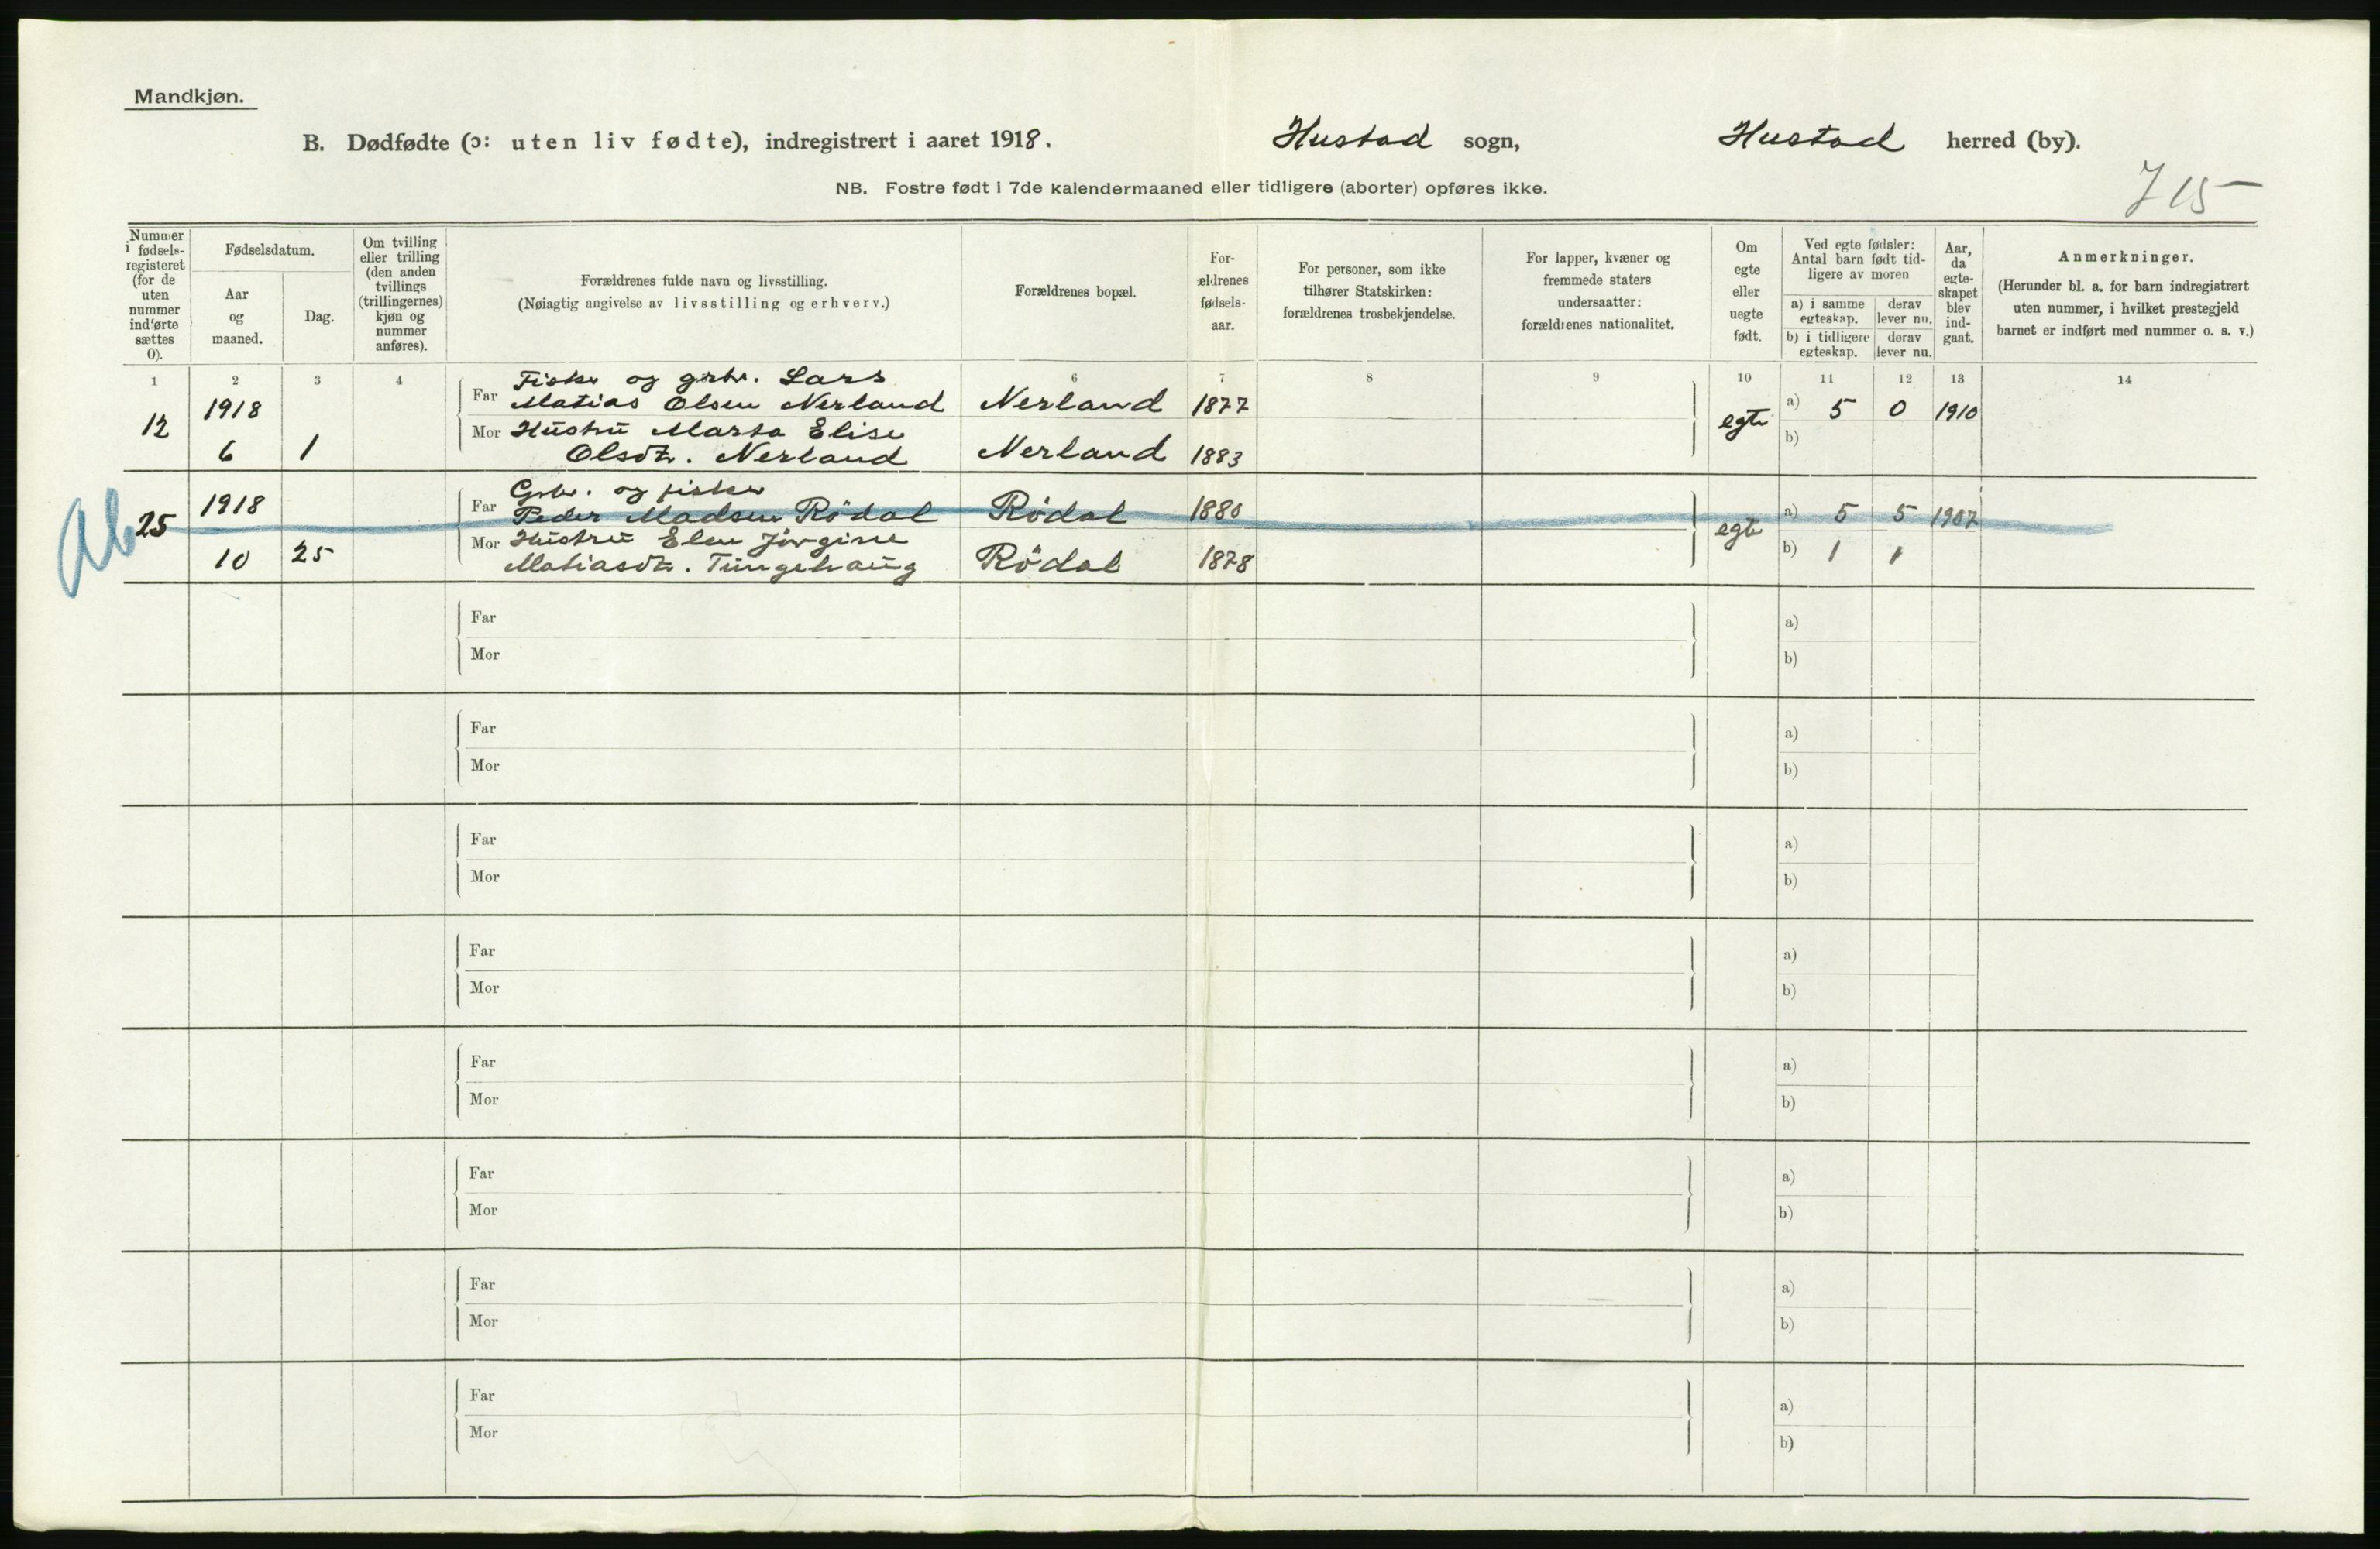 Mandkjøn.
B. Dødfødte (ɔ: uten liv fødte), indregistrert i aaret 1918. Hustad sogn, Hustad herred (by).
NB. Fostre født i 7de kalendermaaned eller tidligere (aborter) opføres ikke.
715
Nummer i fødsels-registeret (for de uten nummer indførte sættes 0).
Fødselsdatum.
Aar og maaned.
Dag.
Om tvilling eller trilling (den anden tvillings (trillingernes) kjøn og nummer anføres).
Forældrenes fulde navn og livsstilling.
(Nøiagtig angivelse av livsstilling og erhverv.)
Forældrenes bopæl.
For-ældrenes fødsels-aar.
For personer, som ikke tilhører Statskirken: forældrenes trosbekjendelse.
For lapper, kvæner og fremmede staters undersaatter: forældrenes nationalitet.
Om egte eller uegte født.
Ved egte fødsler: Antal barn født tid-ligere av moren
a) i samme egteskap.
derav lever nu.
b) i tidligere egteskap.
derav lever nu.
Aar, da egte-skapet blev ind-gaat.
Anmerkninger.
(Herunder bl. a. for barn indregistrert uten nummer, i hvilket prestegjeld barnet er indført med nummer o. s. v.)
1 2 3 4 6 7 8 9 10 11 12 13 14
Fisker og grbr. Lars
12 1918 Far Matias Olsen Nerland Nerland 1877 egte a) 5 0 1910
Mor Hustru Marta Elise b)
6 1 Olsdtr. Nerland Nerland 1883
Ab
Grbr. og fisker
25 1918 Far Peder Madsen Rödal Rödal 1880 egte a) 5 5 1907
Mor Hustru Elen Jörgine b) 1 1
10 25 Matiasdtr. Tungehaug Rödal 1878
Far a)
Mor b)
Far a)
Mor b)
Far a)
Mor b)
Far a)
Mor b)
Far a)
Mor b)
Far a)
Mor b)
Far a)
Mor b)
Far a)
Mor b)